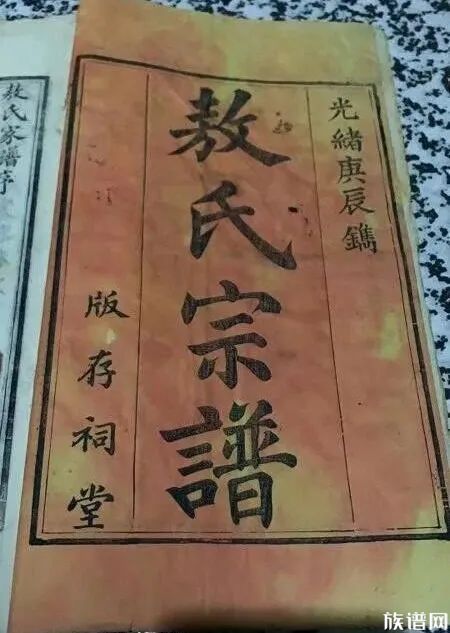 光緒庚辰鐫
敖氏宗譜
版存祠堂
敖氏家譜序
族谱网